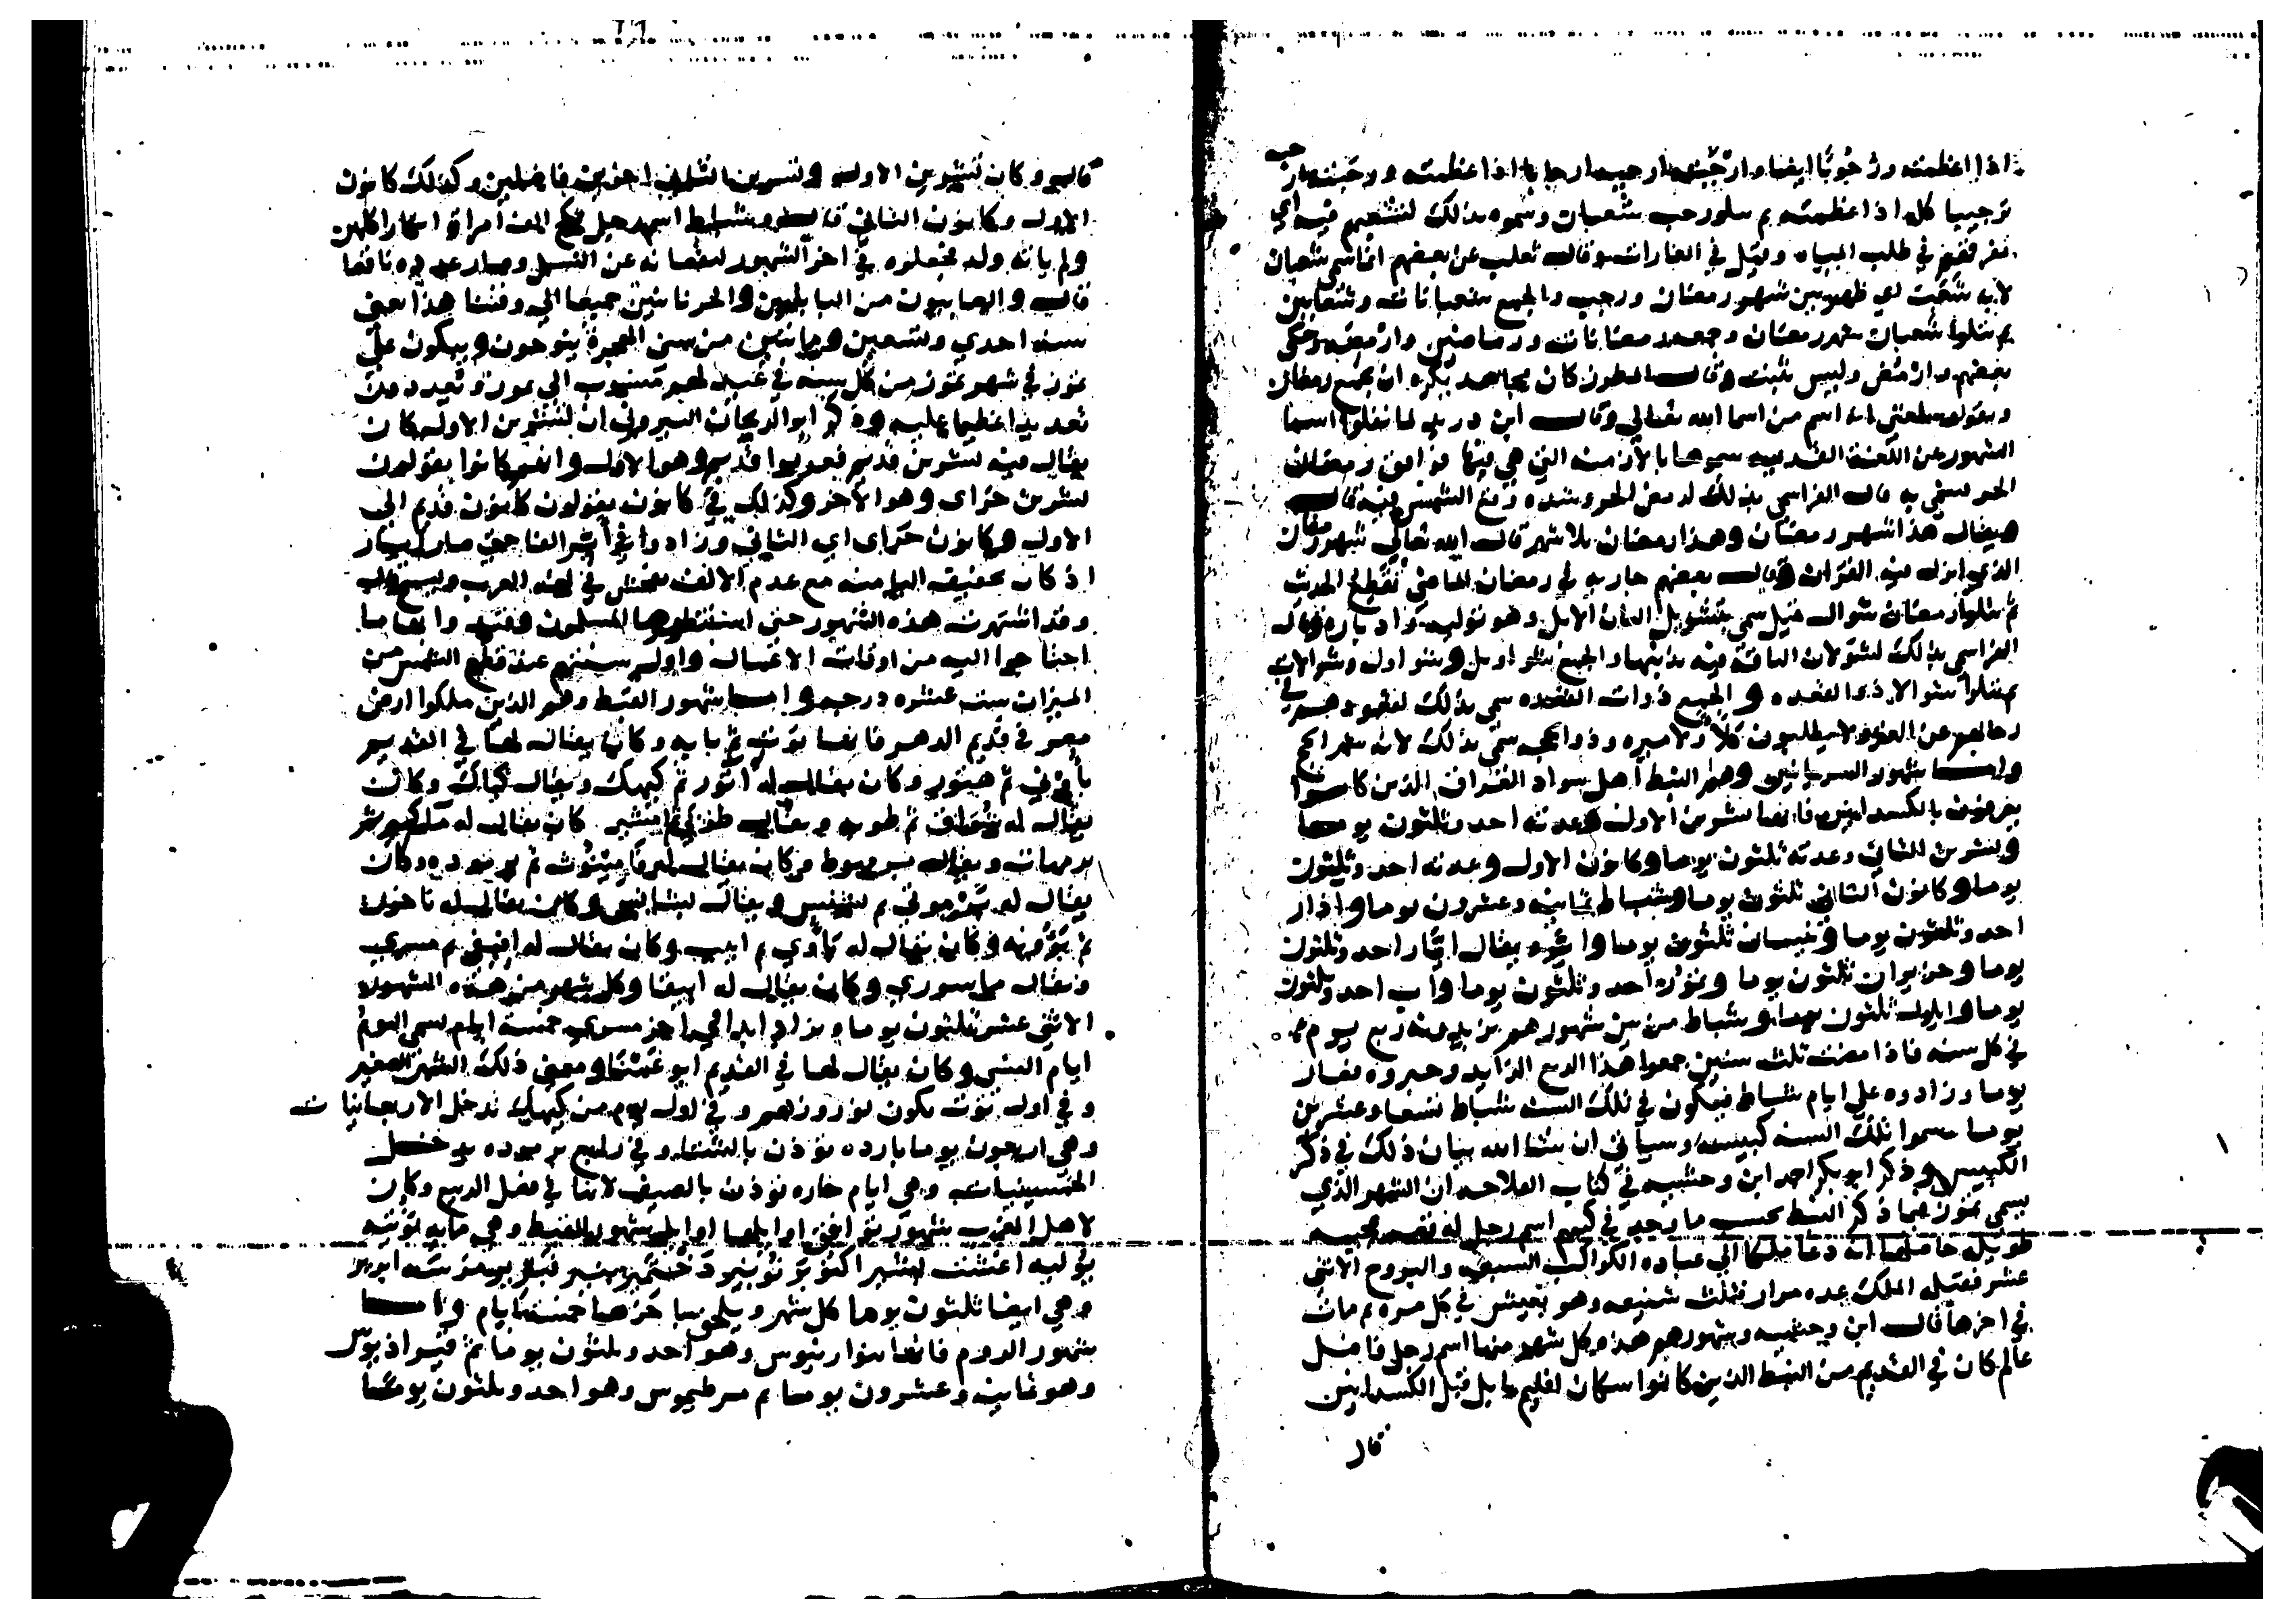 اذا اعظمته ورجوبا ايضا وارجبته ارجبه ارجابا اذا عظمته ورجبته ارجبه
ترجيبا كل اذا عظمته ثم يتلو رجب شعبان وسموه بذلك لتشعبهم فيه اي
تفرقهم في طلب المياه وقيل في الغارات وقال ثعلب عن بعضهم انما سمي شعبان
لانه شعب اي ظهر بين شهر رمضان ورجب والجمع شعبانات وشعابين
ثم يتلوا شعبان شهر رمضان وجمعه رمضانات ورماضين وارمضه وحكى
بعضهم وارمض وليس بثبت وقال المطرز كان مجاهد يكره ان يجمع رمضان
ويقول بلغني انه اسم من اسما الله تعالي وقال ابن دريد لما نقلوا اسما
الشهور عن اللغة القديمه سموها بالازمنه التي هي فيها فوافق رمضان
الحر فسمي به قال الفراسمي بذلك لرمض الحر وشده وقع الشمس فيه قال
ويقال هذا شهر رمضان وهذا رمضان بلا شهر قال الله تعالي شهر رمضان
الذي انزل فيه القران وقال بعضهم جاريه في رمضان الماضي تقطع الحديث
ثم يتلوا رمضان شوال قيل سمي بتشويل البان الابل وهو توليه وادباره وقال
الفراسمي بذلك لشولان الناقة فيه بذنبها والجمع شواويل وشواول وشوالات
ثم يتلوا شوالا ذو القعده والجمع ذوات القعده سمي بذلك لقعودهم في
رحالهم عن الغزو لا يطلبون كلأ ولا ميره وذو الحجه سمي بذلك لانه شهر الحج
واما شهور السريانيين وهم النبط اهل سواد العراق الذين كانوا
يعرفون بالكسدانيين فانها تشرين الاول وعدته احد وثلثون يوما
وتشرين الثاني وعدته ثلثون يوما وكانون الاول وعدته احد وثلثون
يوما وكانون الثاني ثلثون يوما وشباط ثمانيه وعشرون يوما واذار
احد وثلثون يوما ونيسان ثلثون يوما وايره يقال ايار احد وثلثون
يوما وحزيران ثلثون يوما وتموز احد وثلثون يوما واب احد وثلثون
يوما وايلول ثلثون يوما وشباط من بين شهورهم يزيدونه ربع يوم
في كل سنه فاذا مضت ثلث سنين جمعوا هذا الربع الزايد وجبروه فصار
يوما وزادوه علي ايام شباط فيكون في تلك السنه شباط تسعا وعشرين
يوما وسموا تلك السنه كبيسه وسياتي ان شا الله بيان ذلك في ذكر
الكبيس وذكر ابو بكر احمد ابن وحشيه في كتاب الفلاحه ان الشهر الذي
يسمي تموز فيما ذكر النبط بحسب ما وجد في كتبهم اسم رجل له قصه عجيبه
طويله حاصلها انه دعا ملكا الي عباده الكواكب السبعه والبروج الاثني
عشر فقتله الملك عده مرار قتلات شنيعه وهو يعيش في كل مره ثم مات
في اخرها قال ابن وحشيه وشهورهم هذه كل شهر منها اسم رجل فاضل
عالم كان في القديم من النبط الذين كانوا سكان اقليم بابل قبل الكسدانيين
قال
قال وكان تشرين الاول وتشرين الثاني اخوين فاضلين وكذلك كانون
الاول وكانون الثاني قال وشباط اسم رجل نكح الف امراة ابكارا كلهن
ولم ياته ولد فجعلوه في اخر الشهور لنقصانه عن النسل وصار عدده ناقصا
قال والصابيون من البابليين والحرنانيين جميعا الي وقتنا هذا يعني
سنه احدي وتسعين ومايتين من سني الهجرة ينوحون ويبكون علي
تموز في شهر تموز من كل سنه في عيد لهم منسوب الي تموز وتعدد من
تعديدا عظيما عليه وذكر ابو الريحان البيروني ان تشرين الاول كان
يقال فيه تشرين قديم فعربوا قديم وهو الاول وانهم كانوا يقولون
تشرين حراي وهو الاخر وكذلك في كانون يقولون كانون قديم اي
الاول وكانون حراي اي الثاني وزادوا في اير الفا حتى صار ايار
اذ كان تحقيق اليا منه مع عدم الالف يفحش في لغه العرب ويسمج قال
وقد اشتهرت هذه الشهور حتى استنبطوها المسلمون وقيدوا بها ما
احتاجوا اليه من اوقات الاعمال واول سنتهم عند قطع الشمس من
الميزان ست عشره درجه واما شهور القبط وهم الذين ملكوا ارض
مصر في قديم الدهر فانها توت ثم بابه وكان يقال لها في القديم
باوني ثم هتور وكان يقال له اتور ثم كيهك ويقال كياك وكان
يقال له شواق ثم طوبه ويقال طوبي ثم امشير كان يقال له ماكير ثم
برمهات ويقال برمهوط وكان يقال له فامينوث ثم برموده وكان
يقال له برموتي ثم بشنس ويقال بشانس وكان يقال له باخون
ثم بؤونه وكان يقال له باوني ثم ابيب وكان يقال له افيفي ثم مسري
ويقال ماسوري وكان يقال له ايضا وكل شهر من هذه الشهور
الاثني عشر ثلثون يوما ويزاد ابدا في اخر مسري خمسة ايام تسمي اليوم
ايام النسي وكان يقال لها في القديم ابوغمنا ومعنى ذلك الشهر الصغير
وفي اول توت يكون نوروزهم وفي اول يوم من كيهك تدخل الاربعانيات
وهي اربعون يوما بارده تؤذن بالشتا وفي رابع برموده يدخل
الخمسينيات وهي ايام حاره تؤذن بالصيف لانها في فصل الربيع وكان
لاهل الغرب شهور توافق اوايلها اوايل شهور القبط وهي
وهي ايضا ثلثون يوما كل شهر ويلحق باخرها خمسة ايام واما
شهور الروم فانها ينواريوس وهو احد وثلثون يوما ثم فبراريوس
وهو ثمانيه وعشرون يوما ثم مرطيوس وهو احد وثلثون يوما